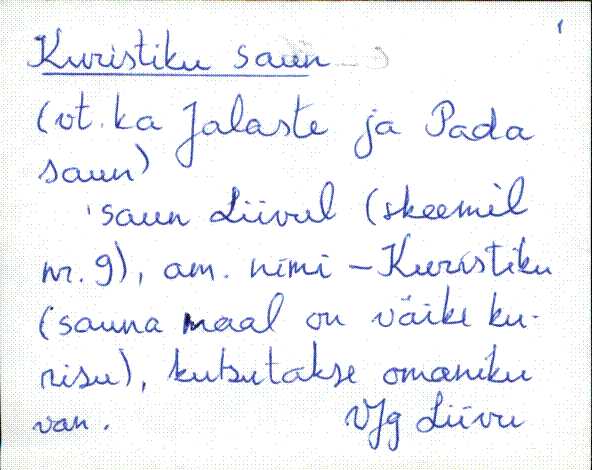 1
Kuristiku saun
(vt. ka Jalaste ja Pada
saun)
'saun Liivul (skeemil
nr. 9), am. nimi – Kuristiku
(sauna maal on väike ku-
risu), kutsutakse omaniku
van. VJg Liivu